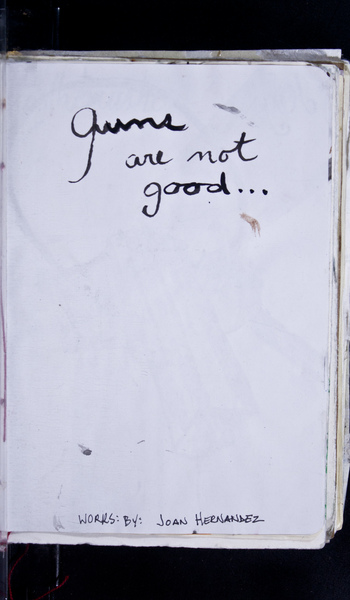 Guns
are not
good...
WORKS: BY: JOAN HERNANDEZ